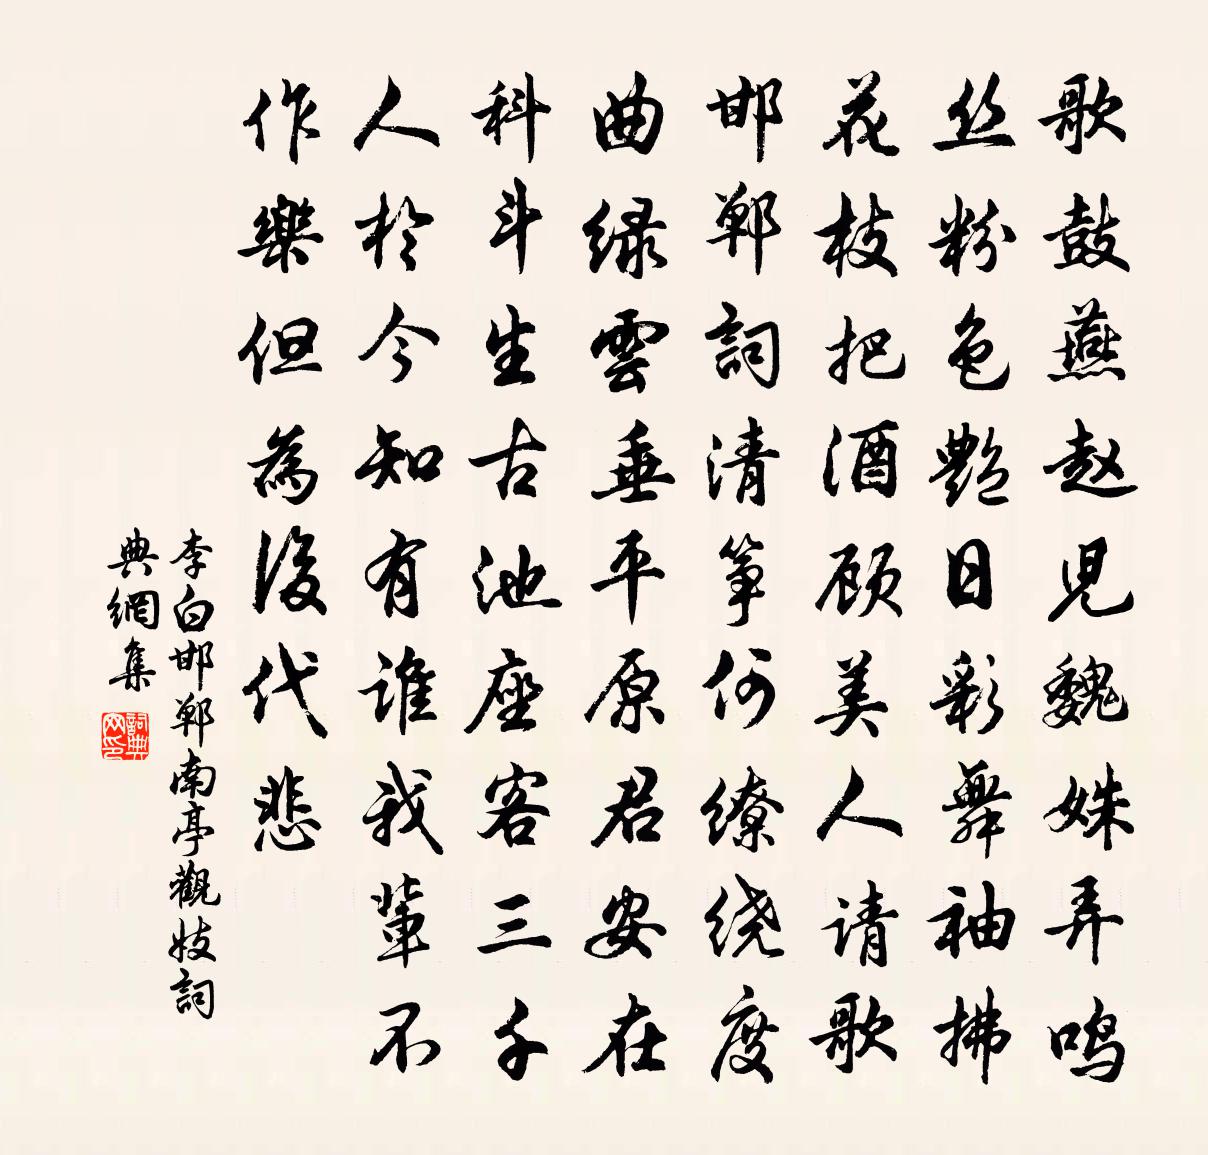 歌鼓燕赵児魏姝弄鸣
丝粉色艷日彩舞袖拂
花枝把酒顾美人请歌
邯鄲詞清筝何缭绕度
曲绿雲垂平原君安在
科斗生古池座客三千
人於今知有谁我輩不
作樂但為後代悲
李白邯鄲南亭觀妓詞
典網集
詞典
网印